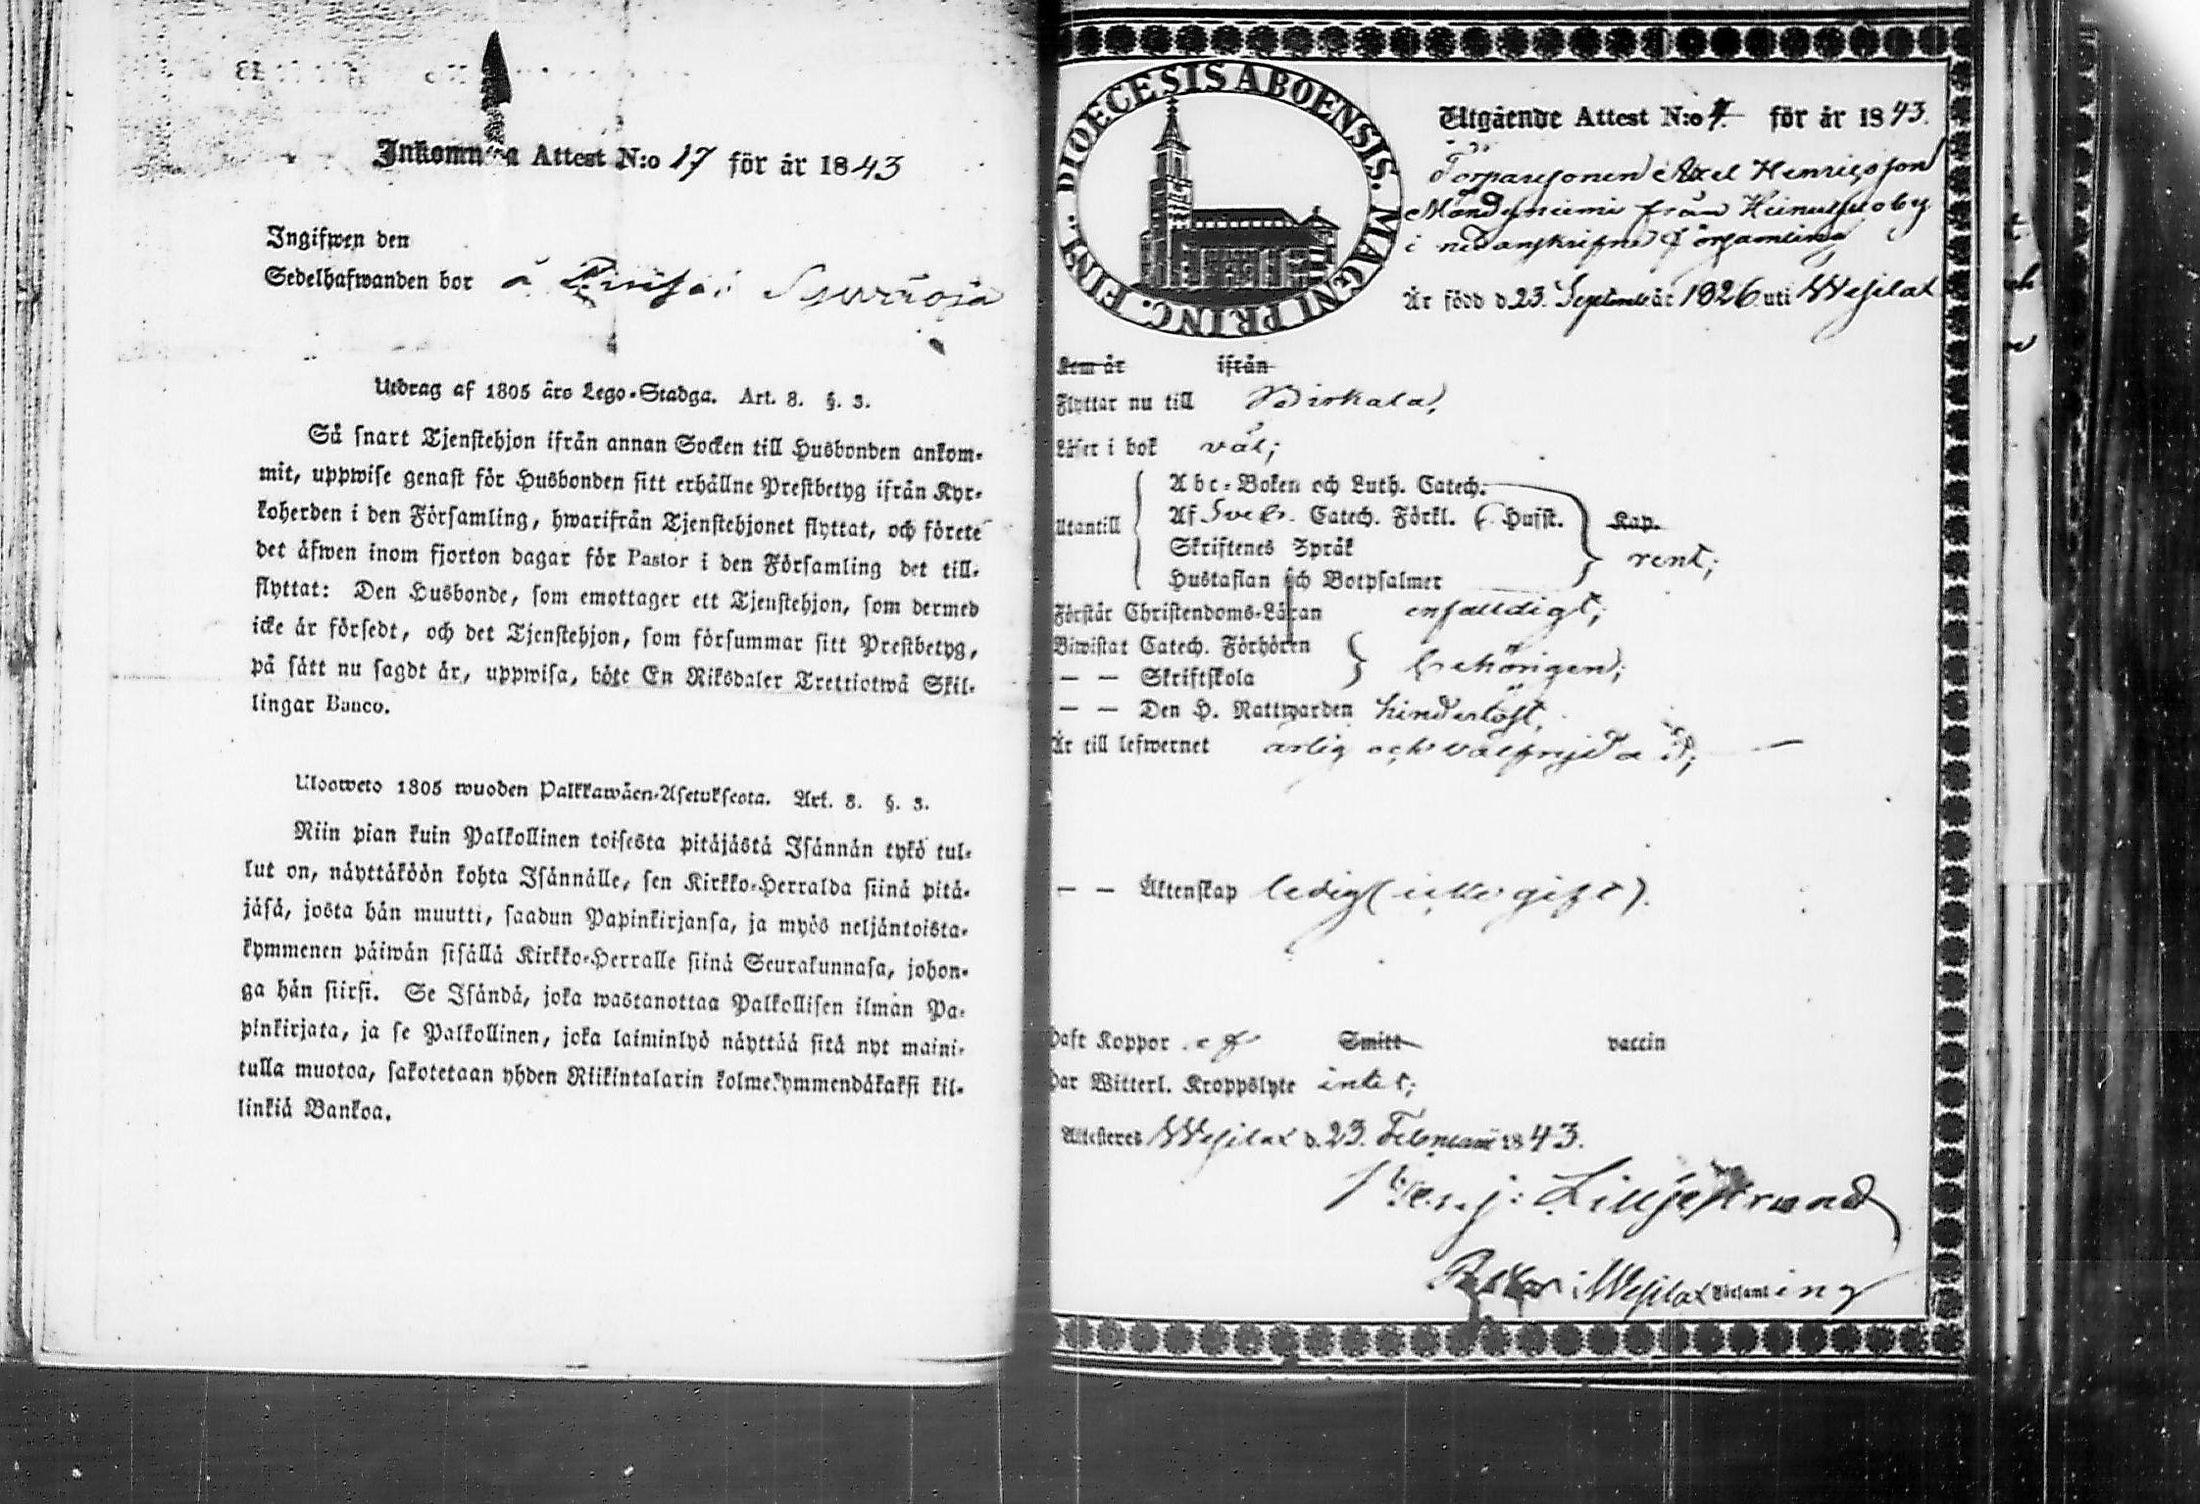 Inkomna Attest N:o 17 för år 1843
Ingifwen den
Sedelhafwanden bor å
Utdrag af 1805 års Lego-Stadga. Art. 8. §. 3.
Så snart Tjenstehjon ifrån annan Socken till Husbonden ankom-
mit, uppwise genast för Husbonden sitt erhållne Prestbetyg ifrån Kyr-
koherden i den Församling, hwarifrån Tjenstehjonet flyttat, och förete
det äfwen inom fjorton dagar för Pastor i den Församling det till-
flyttat: Den Husbonde, som emottager ett Tjenstehjon, som dermed
icke är försedt, och det Tjenstehjon, som försummar sitt Prestbetyg,
på sätt nu sagdt är, uppwisa, böte En Riksdaler Trettiotwå Skil-
lingar Banco.
Ulosweto 1805 wuoden Palkkawäen-Asetuksesta. Art. 8. §. 3.
Niin pian kuin Palkollinen toisesta pitäjästä Isännän tykö tul-
lut on, näyttäköön kohta Isännälle, sen Kirkko-Herralda siinä pitä-
jäsä, josta hän muutti, saadun Papinkirjansa, ja myös neljäntoista-
kymmenen päiwän sisällä Kirkko-Herralle siinä Seurakunnasa, johon-
ga hän siirsi. Se Isändä, joka wastanottaa Palkollisen ilman Pa-
pinkirjata, ja se Palkollinen, joka laiminlyö näyttää sitä nyt maini-
tulla muotoa, sakotetaan yhden Riikintalarin kolmekymmendäkaksi kil-
linkiä Bankoa.
DIOECESIS ABOENSIS. MAGNI PRINC. FINL.
Utgående Attest N:o 4 för år 1843.
Torparesonen Axel Henricsson
från
i nedanskrifne Församling
Är född d. 23. September år 1826 uti Wesilax
Kom år ifrån
Flyttar nu till Birkala,
Läser i bok väl;
Utantill
Abc-Boken och Luth. Catech.
Af Sveb. Catech. Förkl. Hufst. Kap.
Skriftenes Språk
Hustaflan och Botpsalmer
rent;
Förstår Christendoms-Läran enfaldigt;
Biwistat Catech. Förhören
— — Skriftskola
behörigen;
— — Den H. Nattwarden hinderlöst,
Är till lefwernet ärlig och välfrejdad;
— — Äktenskap ledig (icke gift).
Haft Koppor ej Smitt vaccin
Har Witterl. Kroppslyte intet;
Attesteres Wesilax d. 23. Februarii 1843.
Lilljestrand
Pastor i Wesilax Församling